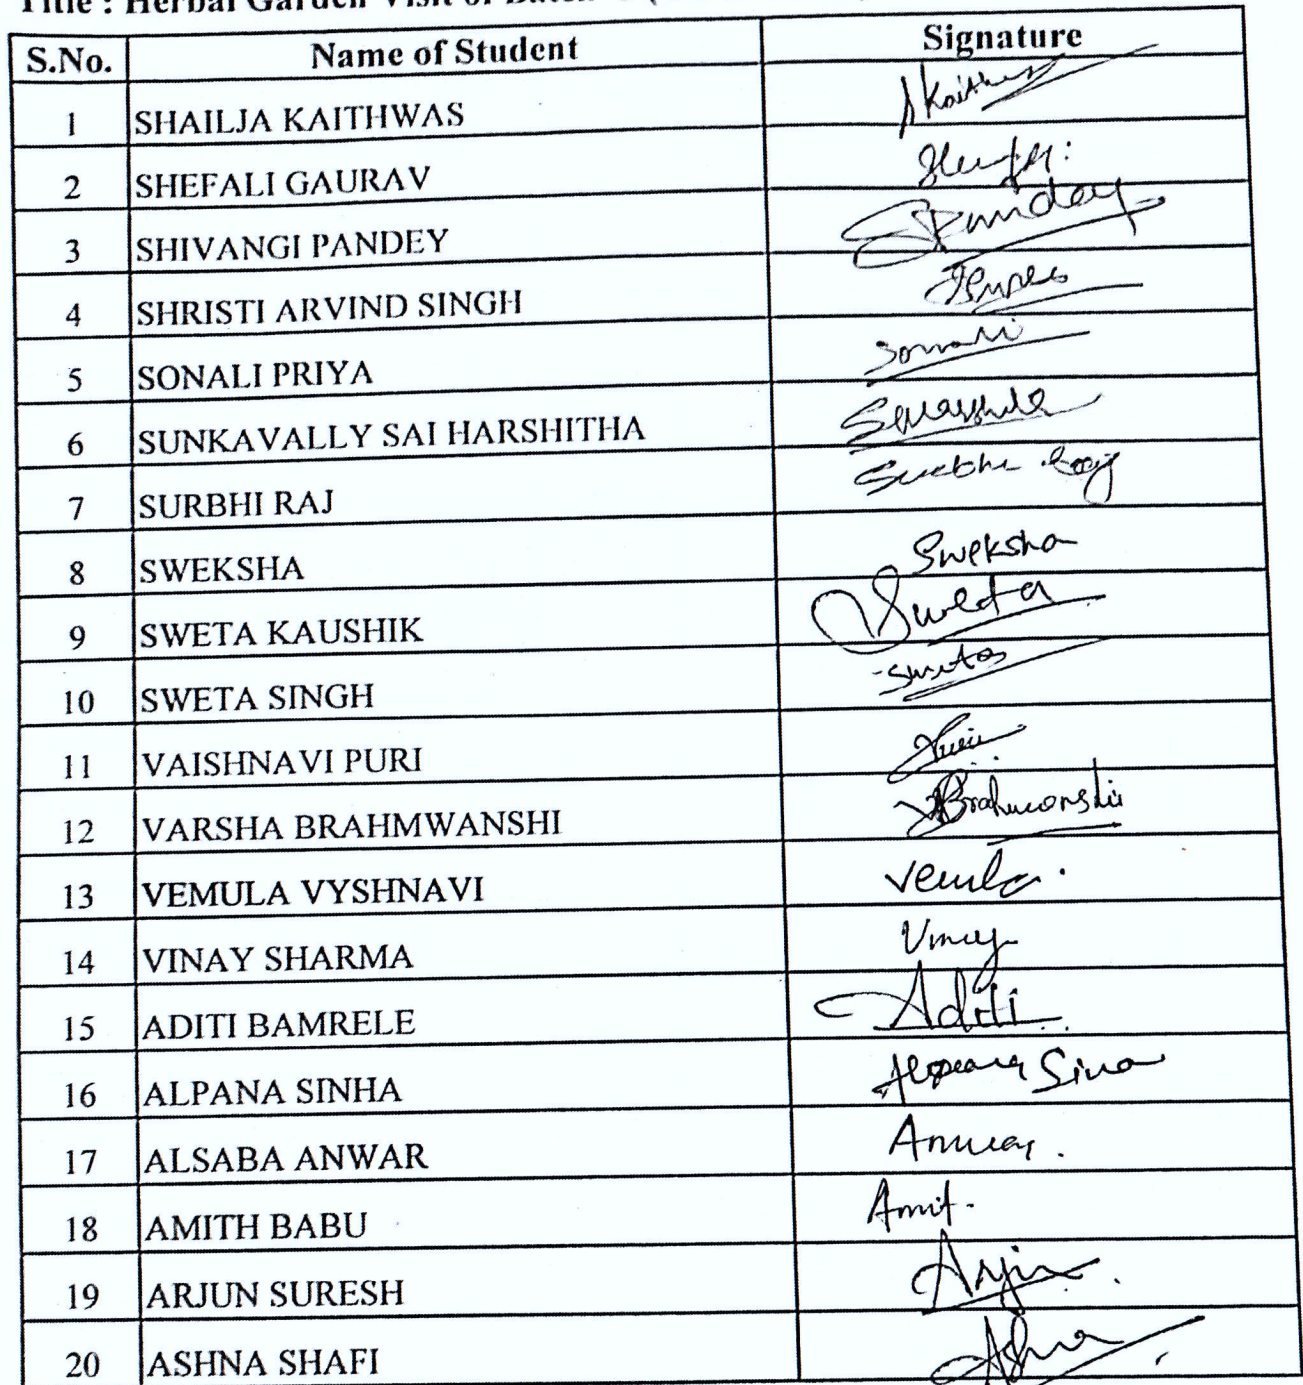 Title : Herbal Garden Visit of Batch
S.No. Name of Student Signature
1 SHAILJA KAITHWAS SKaithwas
2 SHEFALI GAURAV
3 SHIVANGI PANDEY SPandey
4 SHRISTI ARVIND SINGH
5 SONALI PRIYA Sonali
6 SUNKAVALLY SAI HARSHITHA
7 SURBHI RAJ Surbhi Raj
8 SWEKSHA Sweksha
9 SWETA KAUSHIK Sweta
10 SWETA SINGH Sweta
11 VAISHNAVI PURI
12 VARSHA BRAHMWANSHI VBrahmwanshi
13 VEMULA VYSHNAVI Vemula
14 VINAY SHARMA Vinay
15 ADITI BAMRELE Aditi
16 ALPANA SINHA Alpana Sinha
17 ALSABA ANWAR Anwar.
18 AMITH BABU Amit.
19 ARJUN SURESH Arjun
20 ASHNA SHAFI Ashna